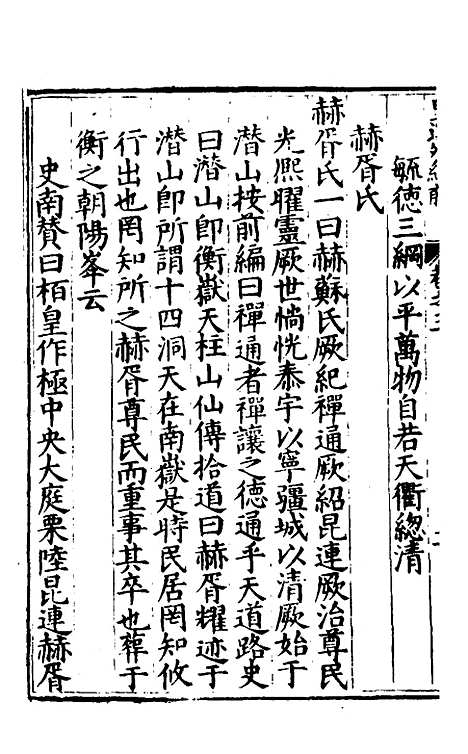 毓德三綱以平萬物自若天衢總清
赫胥氏
赫胥氏一曰赫蘇氏厥紀禪通厥紹昆連厥治尊民
光熙曜靈厥世惝恍泰宇以寧疆城以清厥始于
潛山按前編曰禪通者禪讓之德通乎天道路史
曰潛山即衡嶽天柱山仙傳拾遺曰赫胥耀迹于
潛山即所謂十四洞天在南嶽是時民居罔知攸
行出也罔知所之赫胥尊民而重事其卒也葬于
衡之朝陽峯云
史南贊曰栢皇作極中央大庭栗陸昆連赫胥